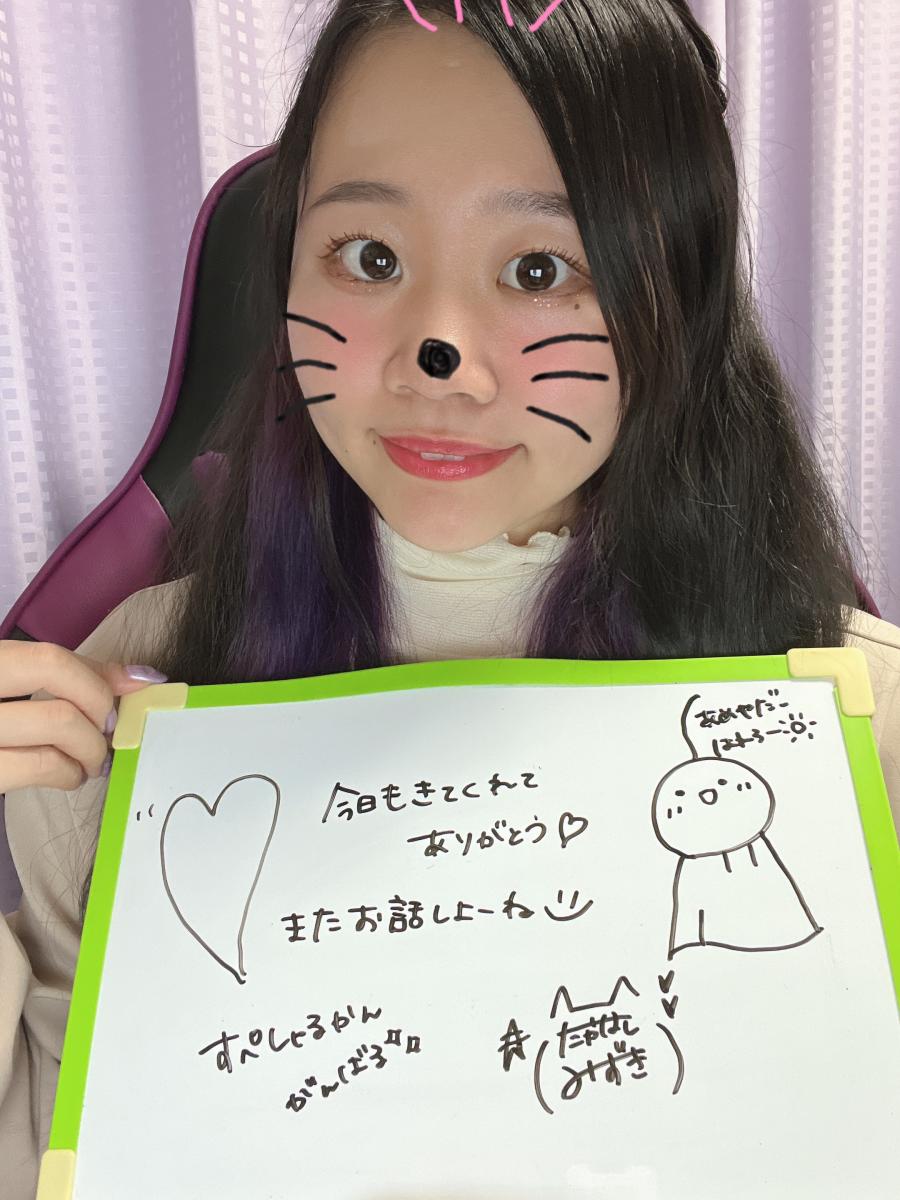 あめやだー
はれろー
今日もきてくれて
ありがとう♡
またお話しよーね
すぺしゃるかん
がんばる
たかはし
みずき